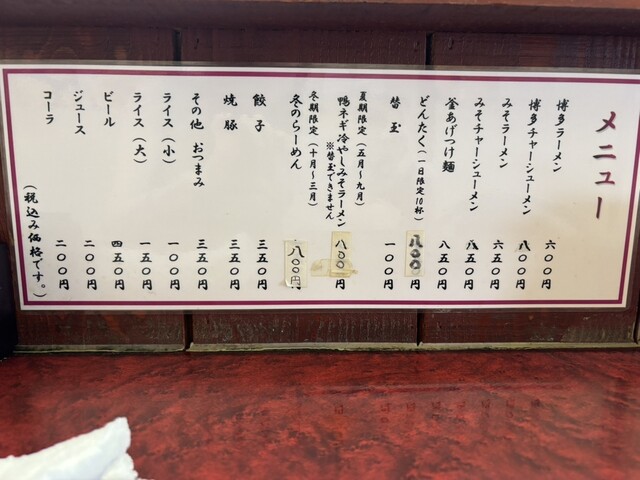 メニュー
博多ラーメン 六〇〇円
博多チャーシューメン 八〇〇円
みそラーメン 六五〇円
みそチャーシューメン 八五〇円
釜あげつけ麺 八五〇円
どんたく(一日限定10杯) 八〇〇円
替玉 一〇〇円
夏期限定(五月〜九月)
鴨ネギ冷やしみそラーメン 八〇〇円
※替玉できません
冬期限定(十月〜三月)
冬のらーめん 八〇〇円
餃子 三五〇円
焼豚 三五〇円
その他 おつまみ 三五〇円
ライス(小) 一〇〇円
ライス(大) 一五〇円
ビール 四五〇円
ジュース 二〇〇円
コーラ 二〇〇円
(税込み価格です。)